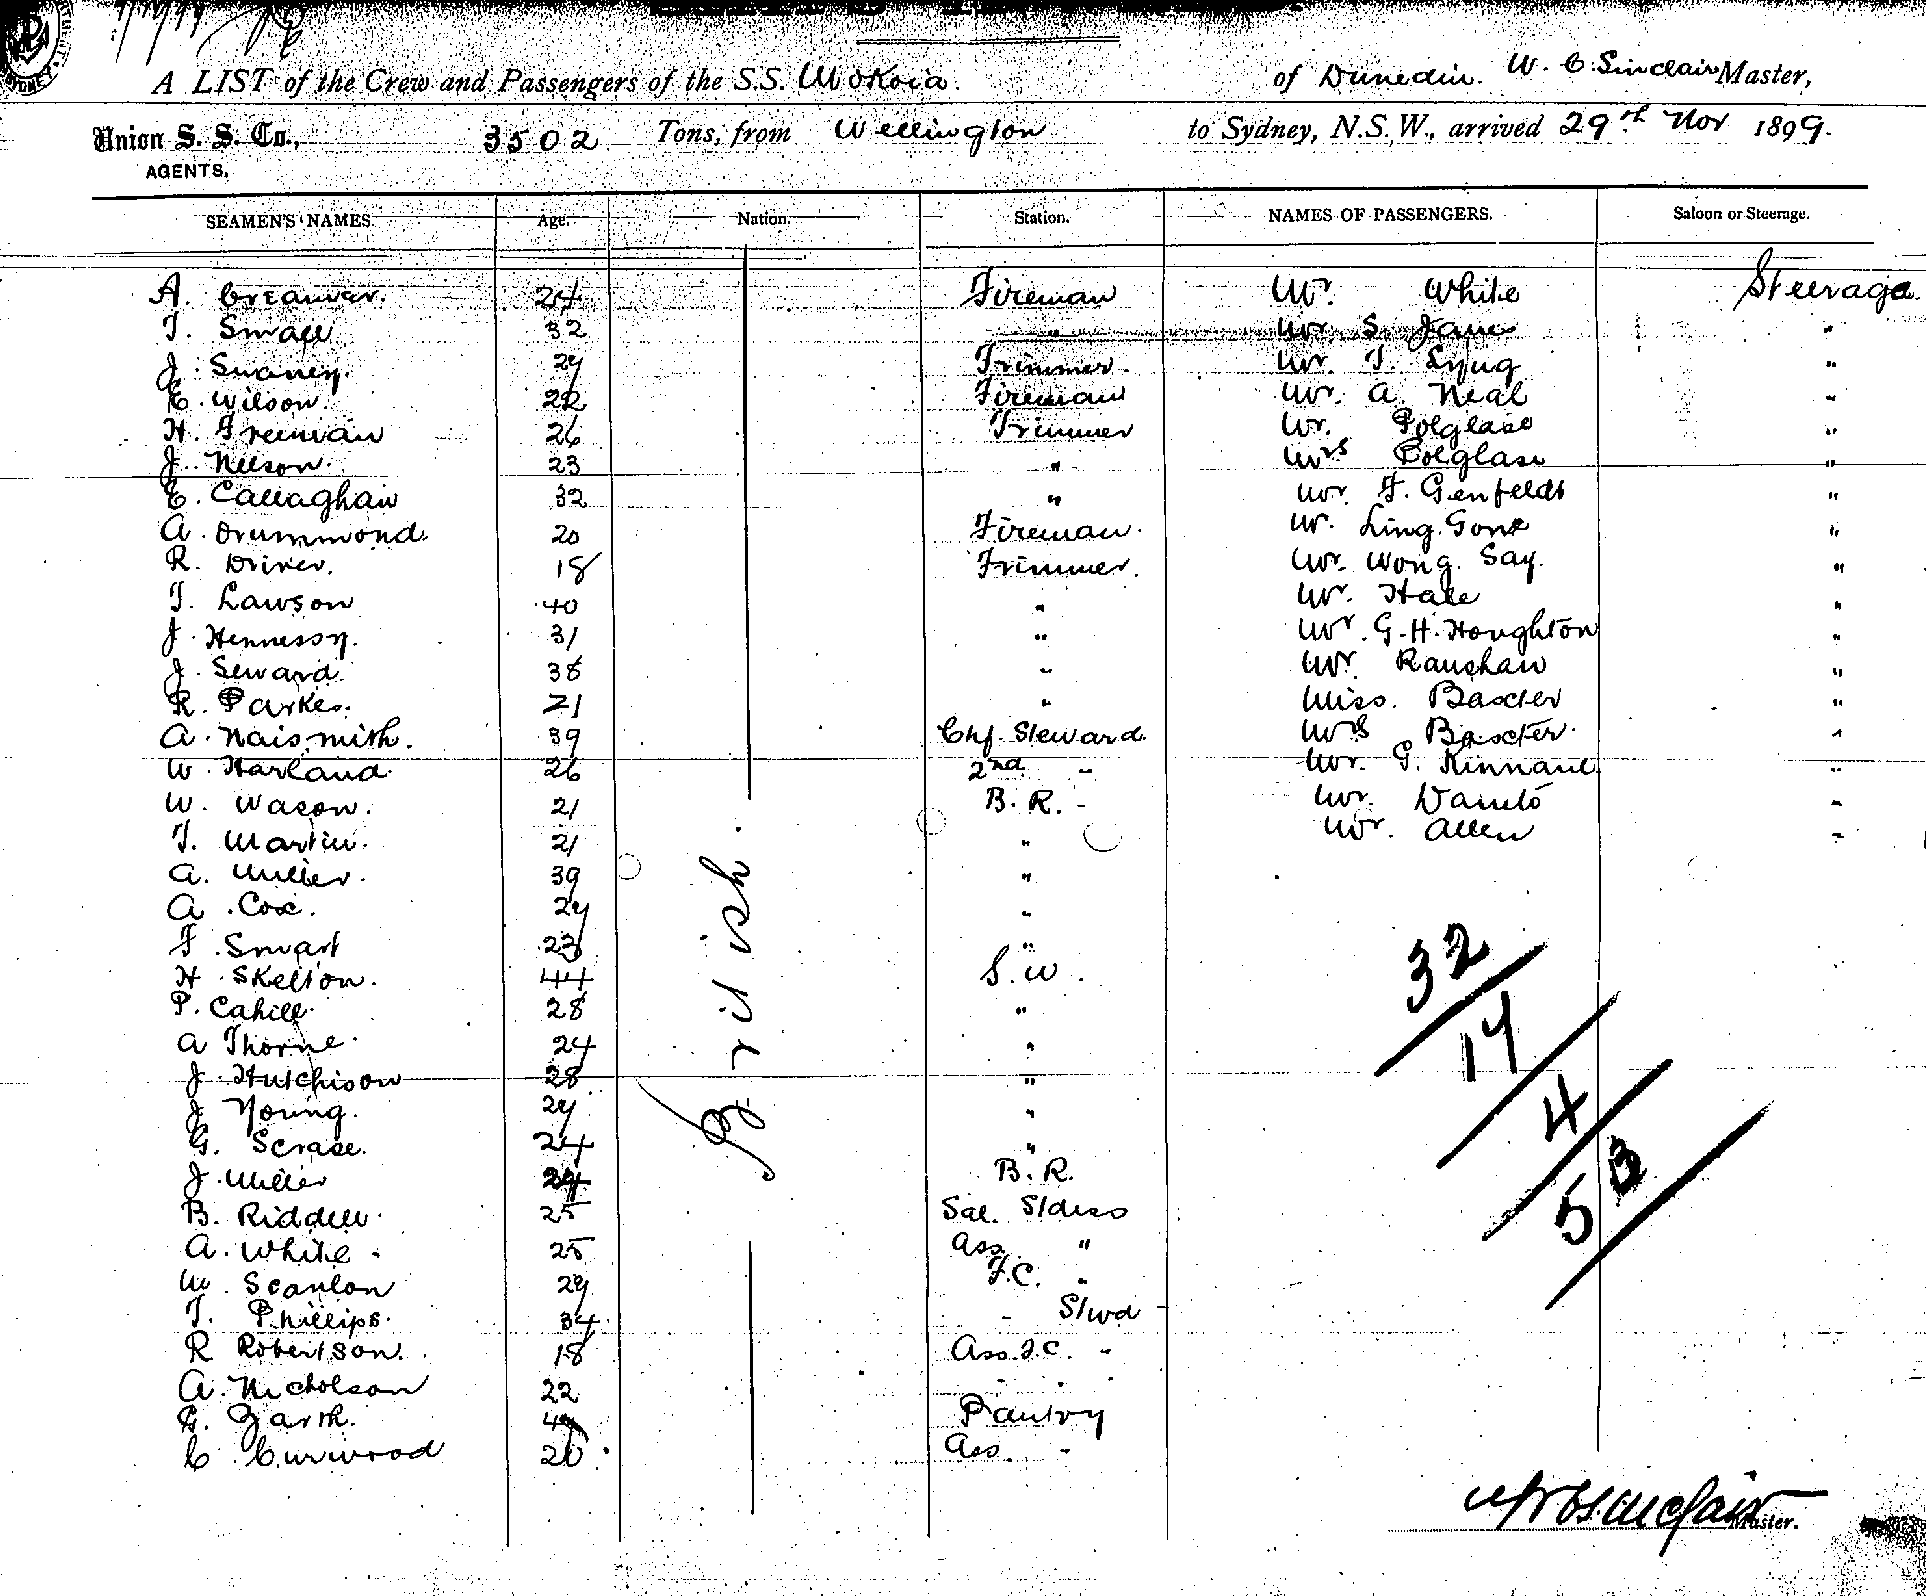 A LIST of the Crew and Passengers of the S.S. Mokoia. of Dunedin. W. C. Sinclair Master,
Union S. S. Co., 3502 Tons, from Wellington to Sydney, N.S.W., arrived 29th Nov 1899.
AGENTS.
SEAMEN'S NAMES. Age. Nation. Station. NAMES OF PASSENGERS. Saloon or Steerage.
A. 24 Fireman Mr. White Steerage
T. Small 32 " Mr. S. "
J. Swaney. 29 Trimmer. Mr. T. "
E. Wilson. 22 Fireman Mr. A. Neal "
H. Freeman 26 Trimmer Mr. Polglase "
J. Nelson. 23 " Mrs Polglase "
E. Callaghan 32 " Mr. F. Genfeldt "
A. Drummond. 20 Fireman. Mr. Ling Gong "
R. Driver. 18 Trimmer. Mr. Wong Say. "
T. Lawson 40 " Mr. Hale "
J. Hennessy. 31 " Mr. G. H. Houghton "
J. Seward. 38 " Mr. "
R. Parkes. 21 " Miss. Baxter "
A. Naismith. 39 Chf. Steward. Mrs Baxter. "
W. Harland. 26 2nd " Mr. G. "
W. Wason. 21 B. R. " Mr. "
T. Martin. 21 " Mr. Allen "
A. Miller. 39 "
A. Cox. 29 "
F. Smart 23 "
H. Skelton. 44 S. W.
P. Cahill. 28 "
A Thorne. 24 "
J. Hutchison 28 "
J Young. 29 "
G. Scrase. 24 "
J. Miller 24 B. R.
B. Riddell. 25 Sal. Stdess
A. White. 25 Ass. "
M. Scanlon 29 F.C. "
T. Phillips. 34 " Stwd
R Robertson. 18 Ass. F.C. "
A. Nicholson 22 " "
G. Garth. Pantry
C. Curwood 20. Ass. "
British.
32
17
4
53
W C Sinclair
Master.